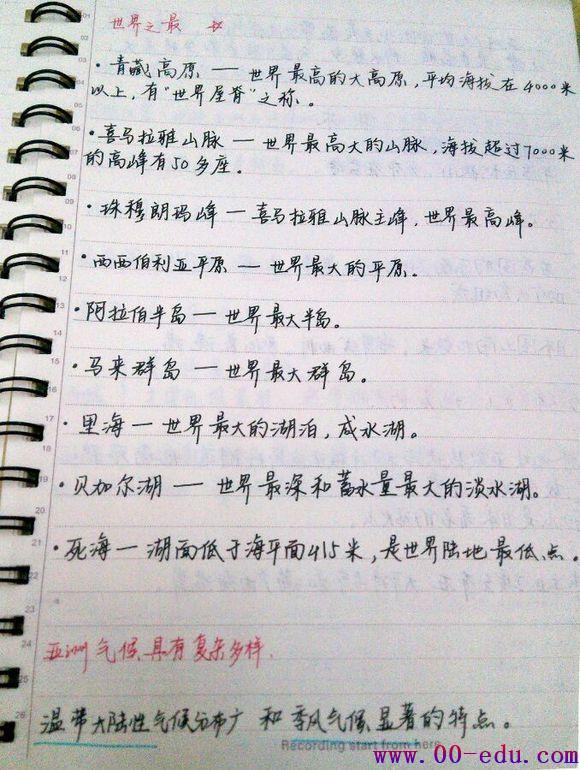 世界之最 ☆
·青藏高原 — 世界最高的大高原,平均海拔在4000米
以上,有"世界屋脊"之称。
·喜马拉雅山脉 — 世界最高大的山脉,海拔超过7000米
的高峰有50多座。
·珠穆朗玛峰 — 喜马拉雅山脉主峰,世界最高峰。
·西西伯利亚平原 — 世界最大的平原.
·阿拉伯半岛 — 世界最大半岛。
·马来群岛 — 世界最大群岛。
·里海 — 世界最大的湖泊,咸水湖。
·贝加尔湖 — 世界最深和蓄水量最大的淡水湖。
·死海 — 湖面低于海平面415米,是世界陆地最低点。
亚洲气候具有复杂多样.
温带大陆性气候分布广 和 季风气候显著的特点。
Recording start from here
www.00-edu.com